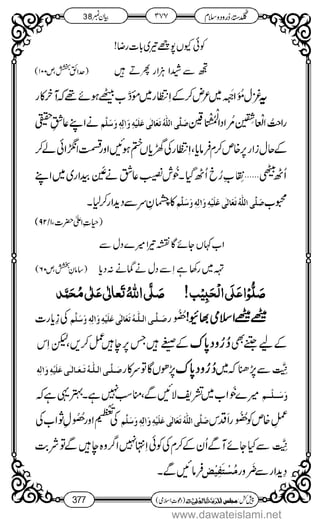 گلدستۂ درود و سلام ۳۷۷ بیان نمبر 38
کوئی کیوں پوچھے تیری بات رضا!
تجھ سے شیدا ہزار پھرتے ہیں (حدائقِ بخشش، ص۱۰۰)
یہ غزل مُؤاجَہَہ میں عرض کر کے انتظار میں مُؤَدَّب بیٹھے ہوئے تھے کہ آخر کار
راحۃُ الْعاشقین مُرادُ الْمُشْتاقین صَلَّی اللّٰہُ تَعَالٰی عَلَیْہِ وَاٰلِہٖ وَسَلَّم نے اپنے عاشقِ حقیقی
کے حالِ زار پر خاص کرم فرمایا، انتظار کی گھڑیاں ختم ہوئیں اور قسمت انگڑائی لے کر
اُٹھ بیٹھی...... نقابِ رُخ اُٹھ گیا۔ خوش نصیب عاشق نے عین بیداری میں اپنے
محبوب صَلَّی اللّٰہُ تَعَالٰی عَلَیْہِ وَاٰلِہٖ وَسَلَّم کا چشمانِ سر سے دیدار کر لیا۔
(حیاتِ اعلیٰ حضرت، ۱/۹۲)
اب کہاں جائے گا نقشہ تیرا میرے دل سے
تہہ میں رکھا ہے اسے دل نے گمانے نہ دیا (سامانِ بخشش، ص۶۰)
صَلُّوْا عَلَی الْحَبِیْب! صَلَّی اللّٰہُ تَعَالٰی عَلٰی مُحَمَّد
میٹھے میٹھے اسلامی بھائیو! حُضُور صَلَّی اللّٰہُ تَعَالٰی عَلَیْہِ وَاٰلِہٖ وَسَلَّم کی زیارت
کے لیے جتنے بھی دُرُودِ پاک کے صیغے ہیں جس پر چاہیں عمل کریں، لیکن اس
نِیَّت سے نہ پڑھنا کہ میں دُرُودِ پاک پڑھوں گا تو سرکار صَلَّی اللّٰہُ تَعَالٰی عَلَیْہِ وَاٰلِہٖ
وَسَلَّم میرے خواب میں تشریف لائیں گے، مناسب نہیں ہے۔ بہتر یہی ہے کہ
خاص عمل کو حُضُور سراپا اَقدس صَلَّی اللّٰہُ تَعَالٰی عَلَیْہِ وَاٰلِہٖ وَسَلَّم کی تعظیم اور حُصُولِ ثواب کی
نِیَّت سے کیا جائے آگے اُن کے کرم کی کوئی انتہا نہیں اگر وہ چاہیں گے تو شربتِ
دیدار سے ضرور مُسْتَفِیْض فرمائیں گے۔
377
www.dawateislami.net